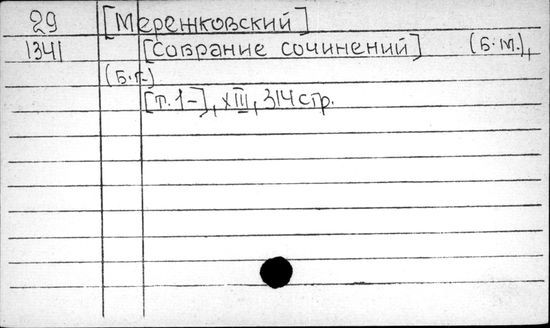 29 [Мережковский]
1341 [Собрание сочинений] (Б.м.),
(Б.г.)
[т.1-], XIII, 314 стр.